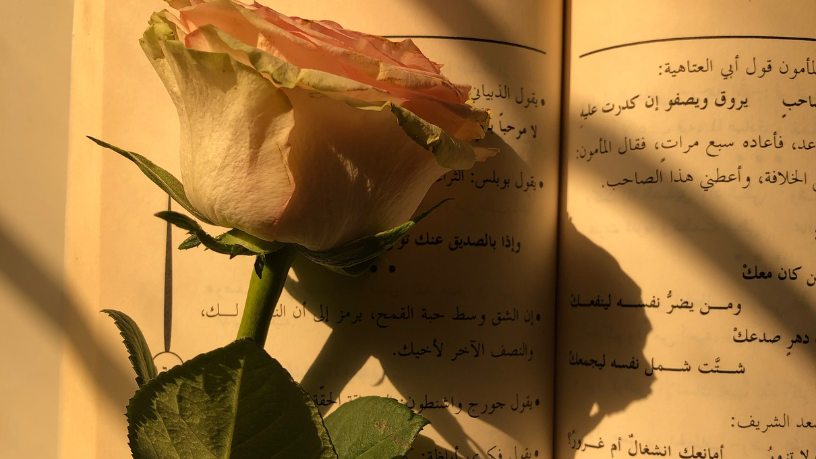 قول أبي العتاهية:
يروق ويصفو إن كدرت عليه
فأعاده سبع مرات، فقال المأمون:
الخلافة، وأعطني هذا الصاحب.
كان معكْ
ومــن يضرُّ نفســه لينفعـكْ
دهرٍ صدعكْ
شتَّت شمــل نفسه ليجمعكْ
الشريف:
أمانعك انشغالٌ أم غــرورُ!
• يقول الذبياني
لا مرحباً
• يقول بوبلس:
وإذا بالصديق عنك
• إن الشق وسط حبة القمح، يرمز إلى أن لــك،
والنصف الآخر لأخيك.
• يقول جورج واشنطون:
• يقول فكري أباظة: